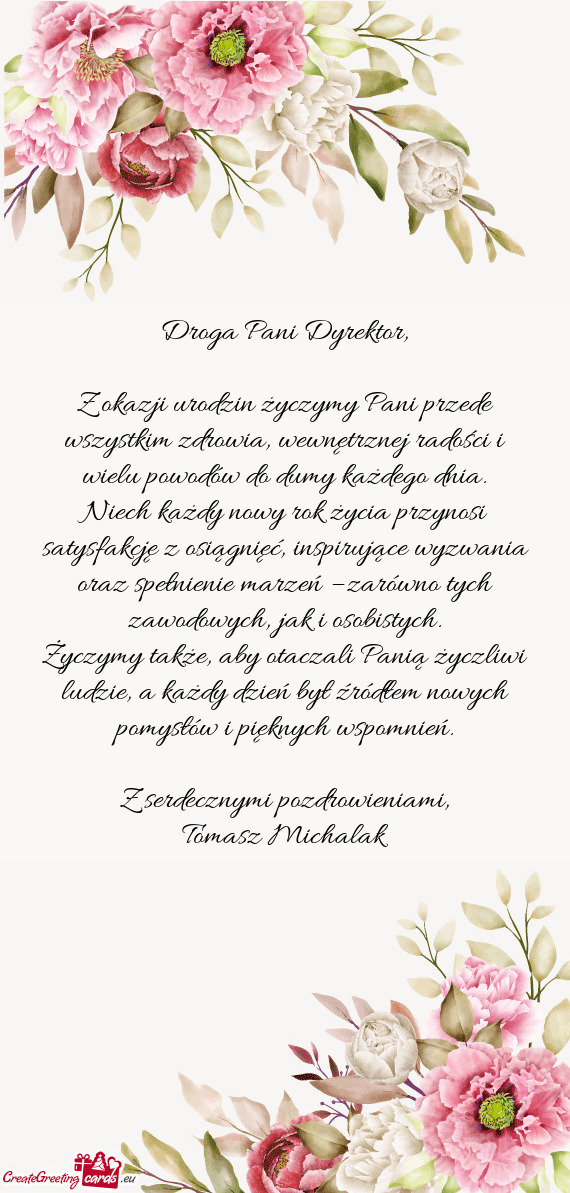 Droga Pani Dyrektor,
Z okazji urodzin życzymy Pani przede
wszystkim zdrowia, wewnętrznej radości i
wielu powodów do dumy każdego dnia.
Niech każdy nowy rok życia przynosi
satysfakcję z osiągnięć, inspirujące wyzwania
oraz spełnienie marzeń – zarówno tych
zawodowych, jak i osobistych.
Życzymy także, aby otaczali Panią życzliwi
ludzie, a każdy dzień był źródłem nowych
pomysłów i pięknych wspomnień.
Z serdecznymi pozdrowieniami,
Tomasz Michalak
CreateGreeting cards .eu